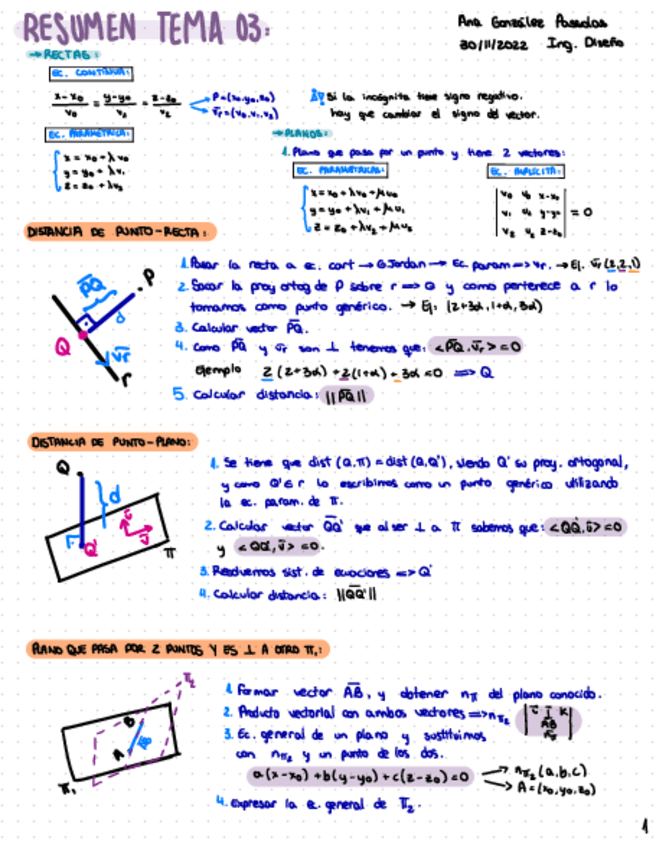 RESUMEN TEMA 03:
Ana González Posadas
30/11/2022 Ing. Diseño
→ RECTAS:
EC. CONTINUA:
x-x₀/v₀ = y-y₀/v₁ = z-z₀/v₂
P=(x₀,y₀,z₀)
v̅r=(v₀,v₁,v₂)
Si la incógnita tiene signo negativo.
hay que cambiar el signo del vector.
EC. PARAMÉTRICA:
x = x₀ + λv₀
y = y₀ + λv₁
z = z₀ + λv₂
→ PLANOS:
1. Plano que pasa por un punto y tiene 2 vectores:
EC. PARAMÉTRICAS:
x = x₀ + λv₀ + μu₀
y = y₀ + λv₁ + μu₁
z = z₀ + λv₂ + μu₂
EC. IMPLÍCITA:
v₀ u₀ x-x₀
v₁ u₁ y-y₀ = 0
v₂ u₂ z-z₀
DISTANCIA DE PUNTO-RECTA:
P
P̅Q̅
d
Q
v̅r
r
1. Pasar la recta a ec. cart → G.Jordan → Ec. param ⇒ vr. → Ej. v̅r (2,2,1)
2. Sacar la proy ortog de P sobre r ⇒ Q y como pertenece a r lo
tomamos como punto genérico. → Ej: (2+3α, 1+α, 3α)
3. Calcular vector P̅Q̅.
4. Como P̅Q̅ y v̅r son ⊥ tenemos que: <P̅Q̅, v̅r> = 0
Ejemplo 2(2+3α) + 2(1+α) + 3α = 0 ⇒ Q
5. Calcular distancia: ||P̅Q̅||
DISTANCIA DE PUNTO-PLANO:
Q
d
Q'
π
1. Se tiene que dist (Q,π) = dist (Q,Q'), siendo Q' su proy. ortogonal,
y como Q'∈ r lo escribimos como un punto genérico utilizando
la ec. param. de π.
2. Calcular vector Q̅Q̅' que al ser ⊥ a π sabemos que: <QQ', u̅> = 0
y <QQ', v̅> = 0.
3. Resolvemos sist. de ecuaciones => Q'
4. Calcular distancia: ||Q̅Q̅'||
PLANO QUE PASA POR 2 PUNTOS Y ES ⊥ A OTRO π₁:
π₂
B
A
π₁
1. Formar vector A̅B̅, y obtener nπ del plano conocido.
2. Producto vectorial con ambos vectores ⇒ nπ₂
i j k
A̅B̅
n̅π
3. Ec. general de un plano y sustituimos
con nπ₂ y un punto de los dos.
a(x-x₀) + b(y-y₀) + c(z-z₀) = 0
nπ₂ (a,b,c)
A = (x₀,y₀,z₀)
4. Expresar la ec. general de π₂.
1